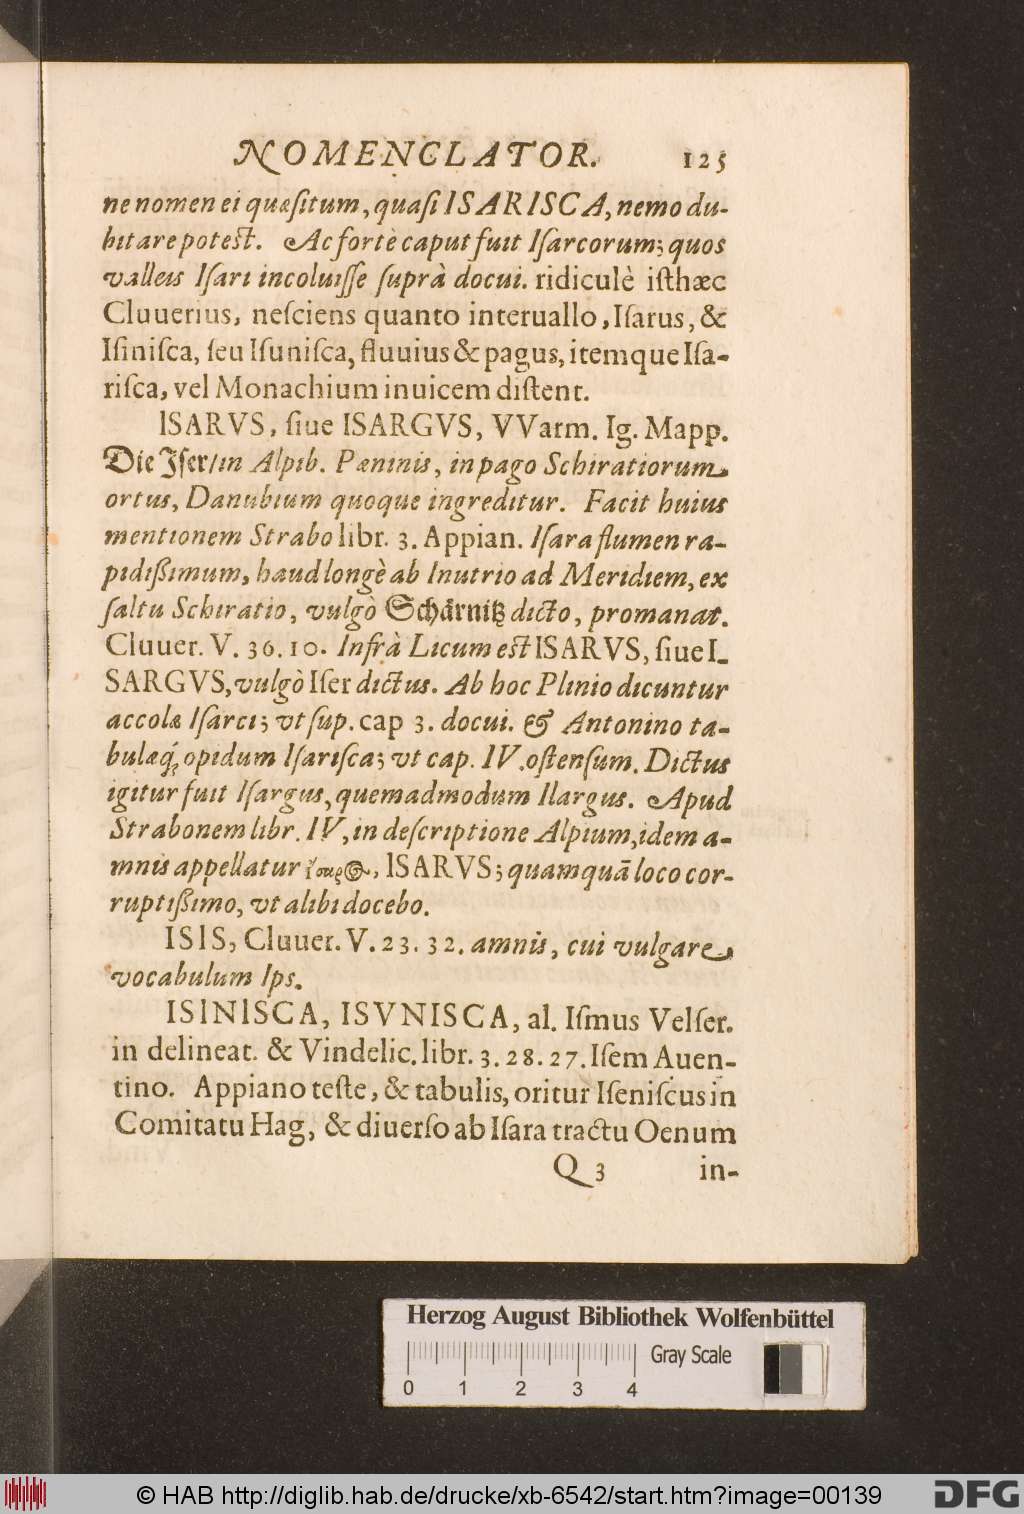 NOMENCLATOR. 125
ne nomen ei quæſitum, quaſi ISARISCA, nemo du-
bitare poteſt. Ac fortè caput fuit Iſarcorum; quos
valleis Iſari incoluiſſe ſuprà docui. ridiculè iſthæc
Cluuerius, neſciens quanto interuallo, Iſarus, &
Iſiniſca, ſeu Iſuniſca, fluuius & pagus, itemque Iſa-
riſca, vel Monachium inuicem diſtent.
ISARVS, ſiue ISARGVS, VVarm. Ig. Mapp.
Die Jſer/in Alpib. Pæninis, in pago Schiratiorum
ortus, Danubium quoque ingreditur. Facit huius
mentionem Strabo libr. 3. Appian. Iſara flumen ra-
pidißimum, haud longè ab Inutrio ad Meridiem, ex
ſaltu Schiratio, vulgò Schärnitz dicto, promanat.
Cluuer. V. 36. 10. Infrà Licum eſt ISARVS, ſiue I-
SARGVS, vulgò Iſer dictus. Ab hoc Plinio dicuntur
accolæ Iſarci; vt ſup. cap 3. docui. & Antonino ta-
bulæq́; opidum Iſariſca; vt cap. IV. oſtenſum. Dictus
igitur fuit Iſargus, quemadmodum Ilargus. Apud
Strabonem libr. IV, in deſcriptione Alpium, idem a-
mnis appellatur ἴσαρος, ISARVS; quamquā loco cor-
ruptißimo, vt alibi docebo.
ISIS, Cluuer. V. 23. 32. amnis, cui vulgare
vocabulum Ips.
ISINISCA, ISVNISCA, al. Iſmus Velſer.
in delineat. & Vindelic. libr. 3. 28. 27. Iſem Auen-
tino. Appiano teſte, & tabulis, oritur Iſeniſcus in
Comitatu Hag, & diuerſo ab Iſara tractu Oenum
Q 3 in-
Herzog August Bibliothek Wolfenbüttel
Gray Scale
0 1 2 3 4
© HAB http://diglib.hab.de/drucke/xb-6542/start.htm?image=00139
DFG